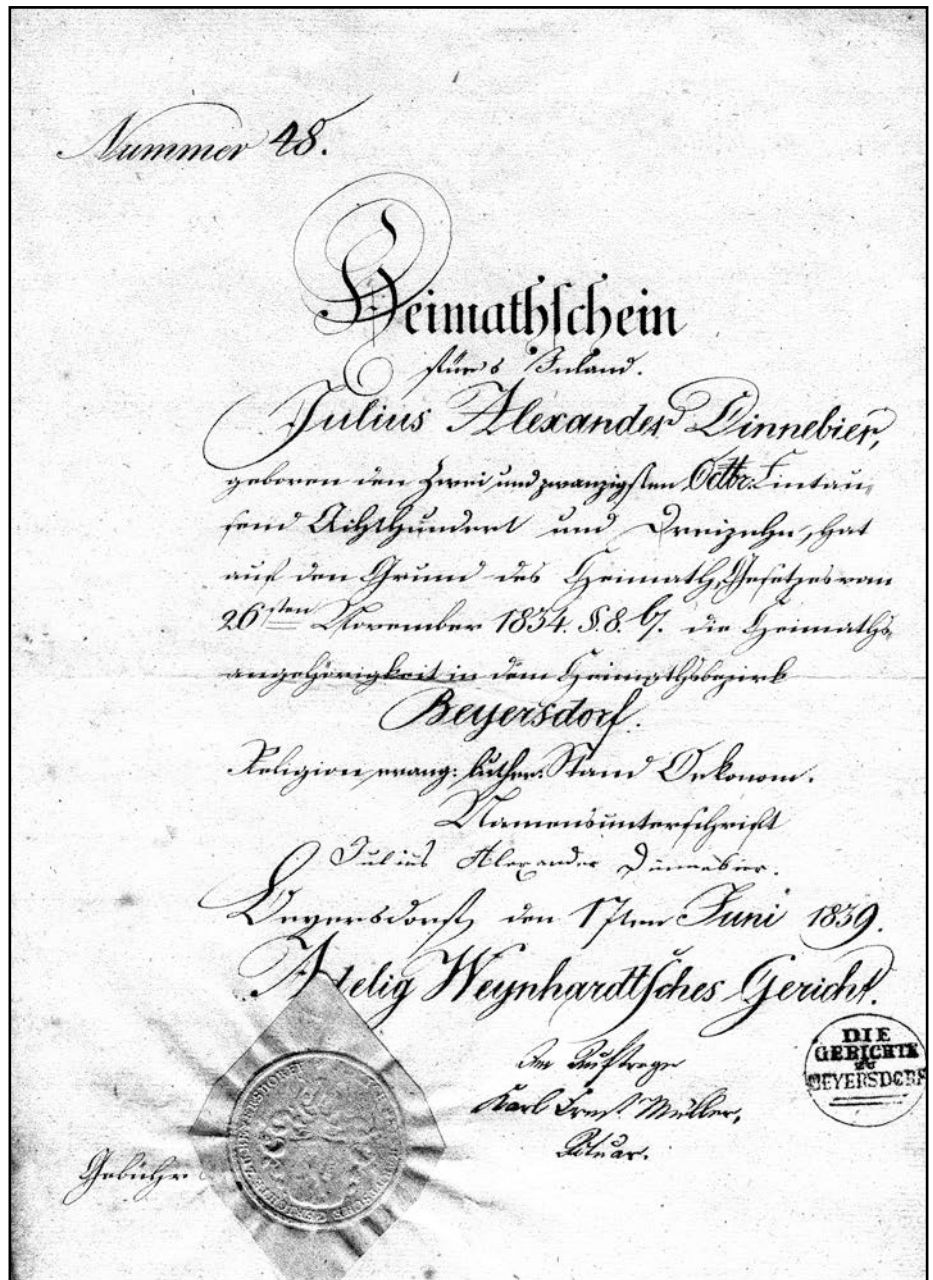 Nummer 48.
Heimathschein
für's Inland.
Julius Alexander Dinnebier,
geboren den Zwei und zwanzigsten Octbr. Eintau-
send Achthundert und Dreizehn, hat
auf den Grund des Heimath-Gesetzes vom
26sten November 1834. §. 8. b. die Heimaths-
angehörigkeit in dem Heimathsbezirk
Beyersdorf.
Religion evang: luther. Stand Oekonom.
Namensunterschrift
Julius Alexander Dinnebier.
Beyersdorf, den 17ten Juni 1839.
Adelig Weynhardtsches Gericht.
Im Auftrage
Karl Ernst Müller,
Actuar.
DIE
GERICHTE
zu
BEYERSDORF
Gebühr